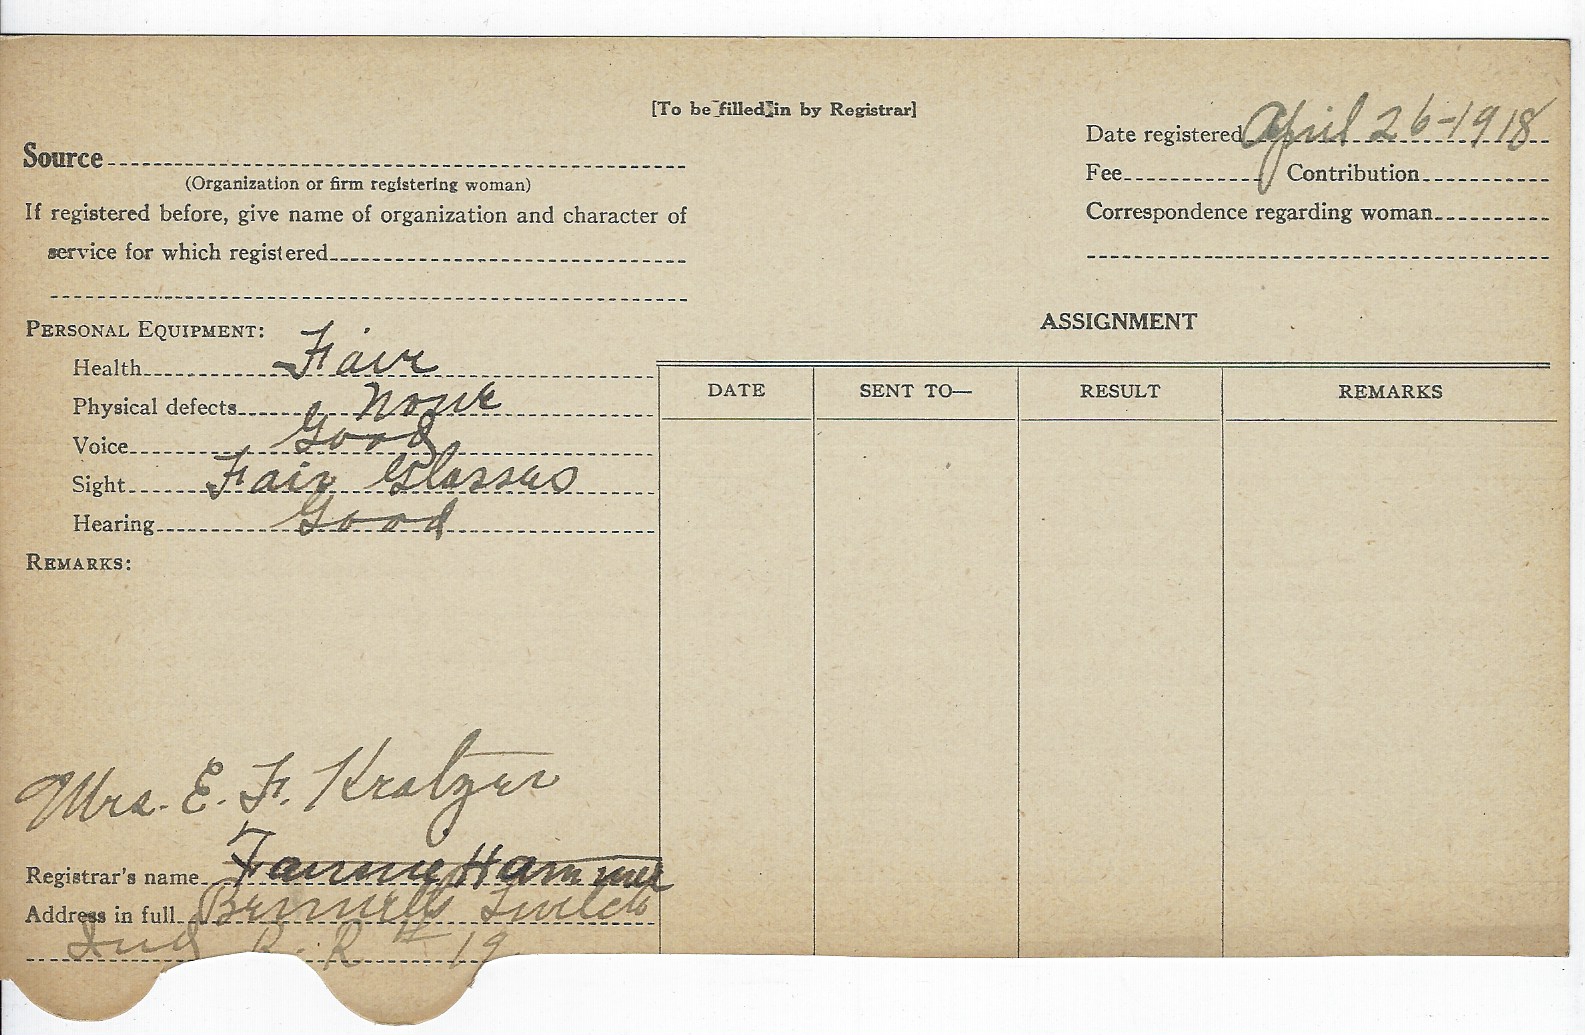 [To be filled in by Registrar]
Date registered April 26-1918
Source
(Organization or firm registering woman)
Fee Contribution
If registered before, give name of organization and character of
service for which registered
Correspondence regarding woman
PERSONAL EQUIPMENT:
Health Fair
Physical defects None
Voice Good
Sight Fair Glasses
Hearing Good
REMARKS:
ASSIGNMENT
DATE SENT TO— RESULT REMARKS
Mrs. E. F. Kratzer
Registrar's name Fannie Hammer
Address in full Bennetts Switch
Ind R. R # 19